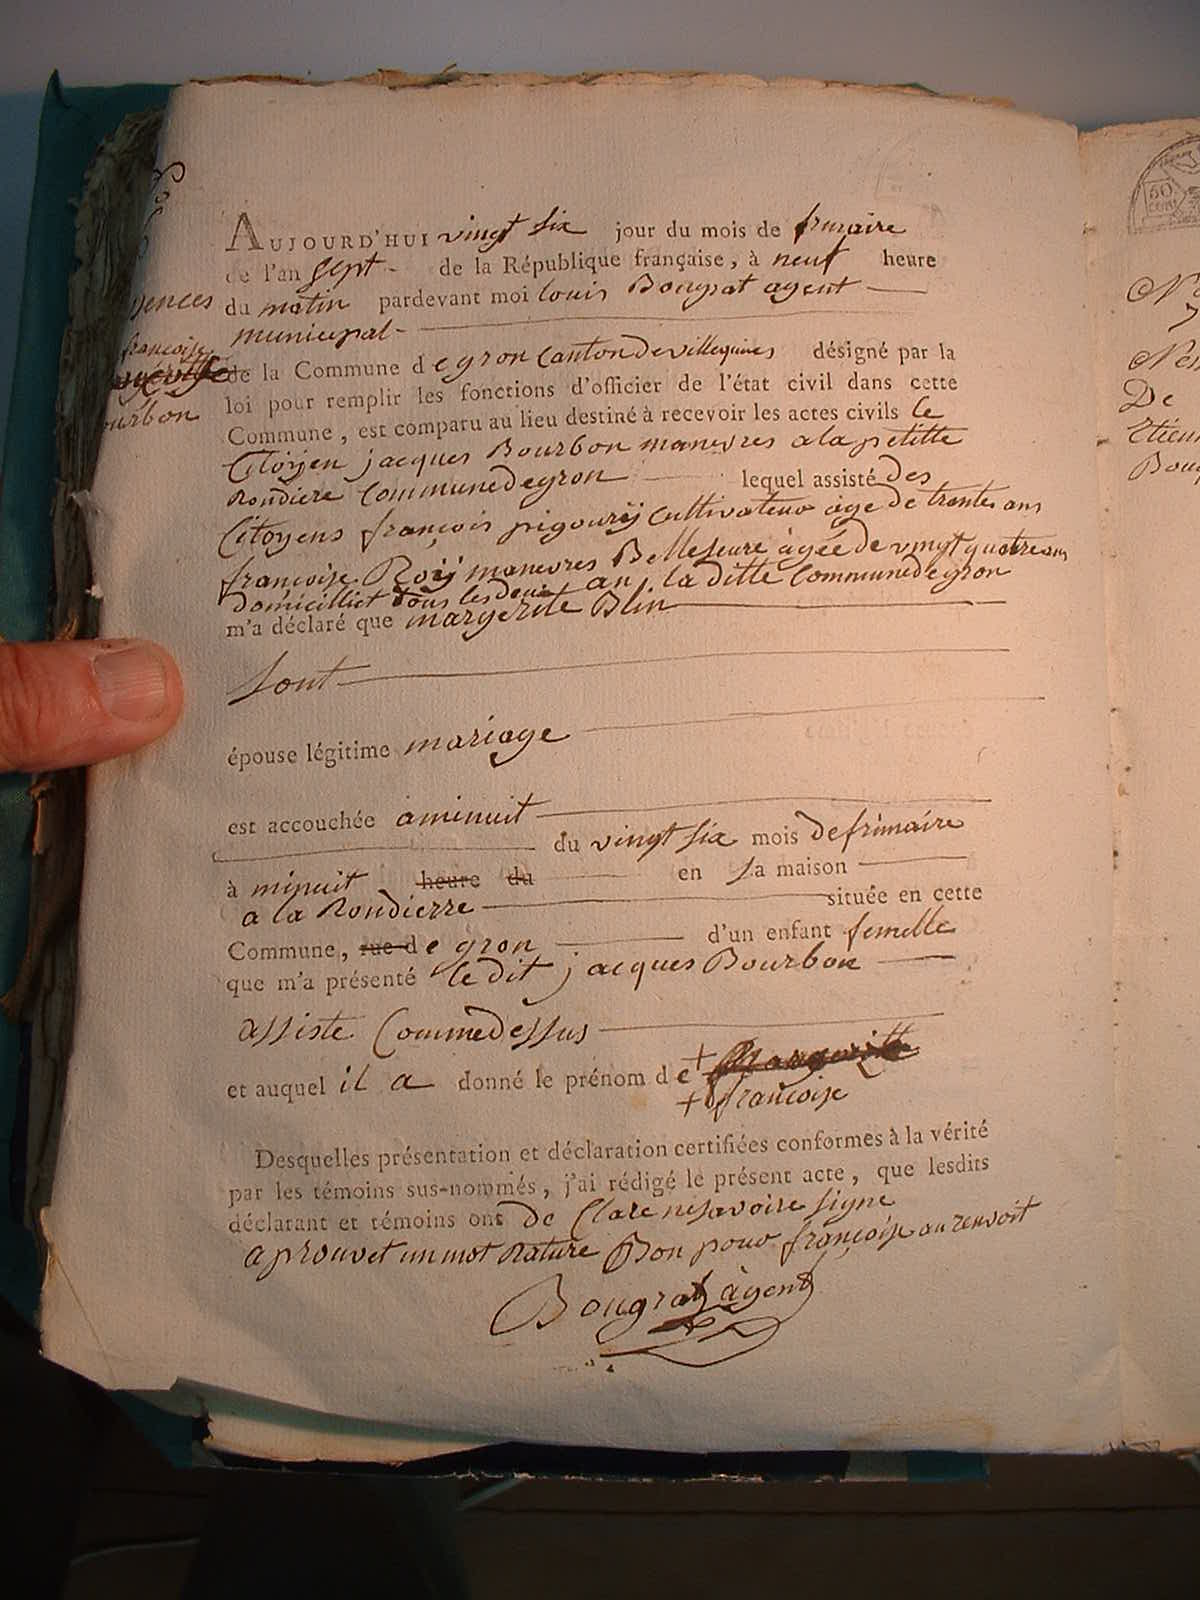 AUJOURD'HUI vingt six jour du mois de frimaire
de l'an sept de la République française, à neuf heure
du matin pardevant moi louis Bougrat agent
municipal
de la Commune de gron Canton de villequiers désigné par la
loi pour remplir les fonctions d'officier de l'état civil dans cette
Commune, est comparu au lieu destiné à recevoir les actes civils le
Citoyen jacques Bourbon manevres a la petitte
Rondiere Commune de gron lequel assisté des
Citoyens françois pigoury Cultivateur âge de trente ans
françoise Roÿ manevres Belleseure âgée de vingt quatre ans
domicilliet tous les deux an la ditte Commune de gron
m'a déclaré que margerite Blin
sont
épouse légitime mariage
est accouchée a minuit
du vingt six mois de frimaire
à minuit heure du en sa maison
a la Rondierre située en cette
Commune, rue de gron d'un enfant femelle
que m'a présenté le dit jacques Bourbon
assiste Comme dessus
et auquel il a donné le prénom de + Margeritte
+ françoise
Desquelles présentation et déclaration certifiées conformes à la vérité
par les témoins sus-nommés, j'ai rédigé le présent acte, que lesdits
déclarant et témoins ont de Clare ne savoire signe
aprouvet un mot Rature Bon pour françoise au renvoit
Bougrat àgent
françoise
ourbon
50
CENT
De